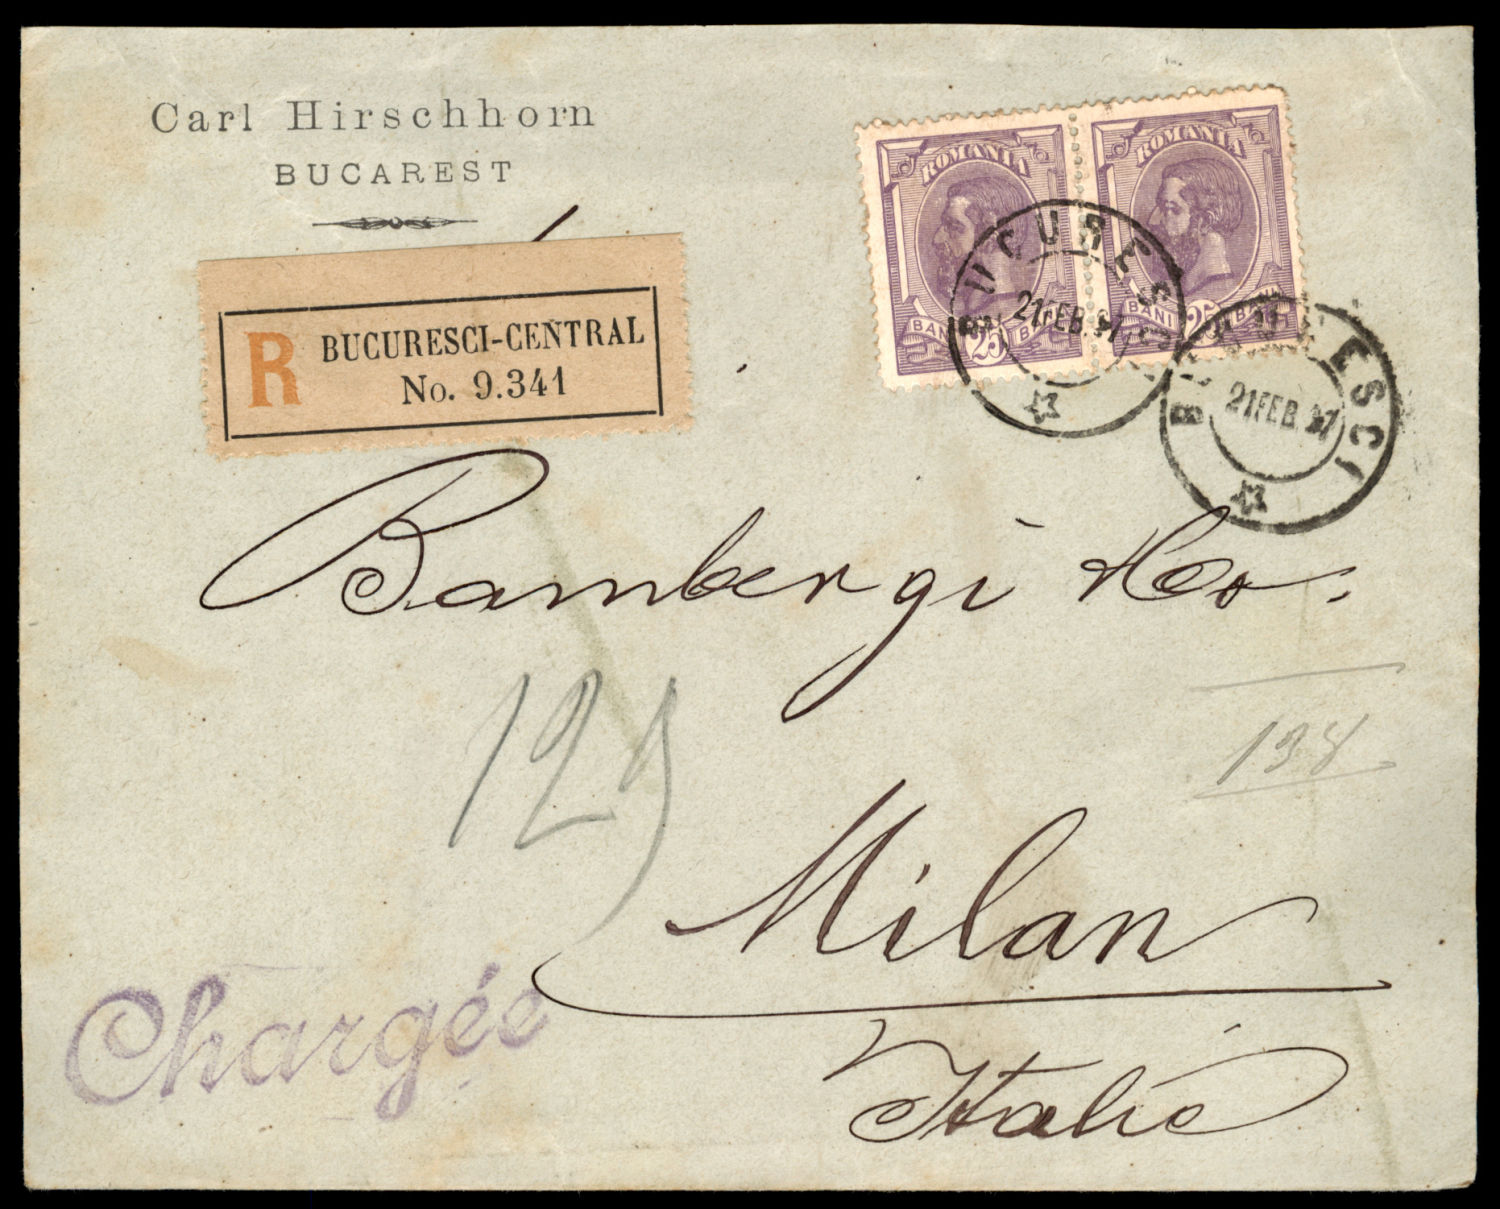 Carl Hirschhorn
BUCAREST
ROMANIA
ROMANIA
BANI 25 BANI
BANI 25 BANI
BUCURESCI
21 FEB. 97
BUCURESCI
21 FEB. 97
R BUCURESCI-CENTRAL
No. 9.341
Bambergi &Co.
129
138
Milan
Chargée
Italie